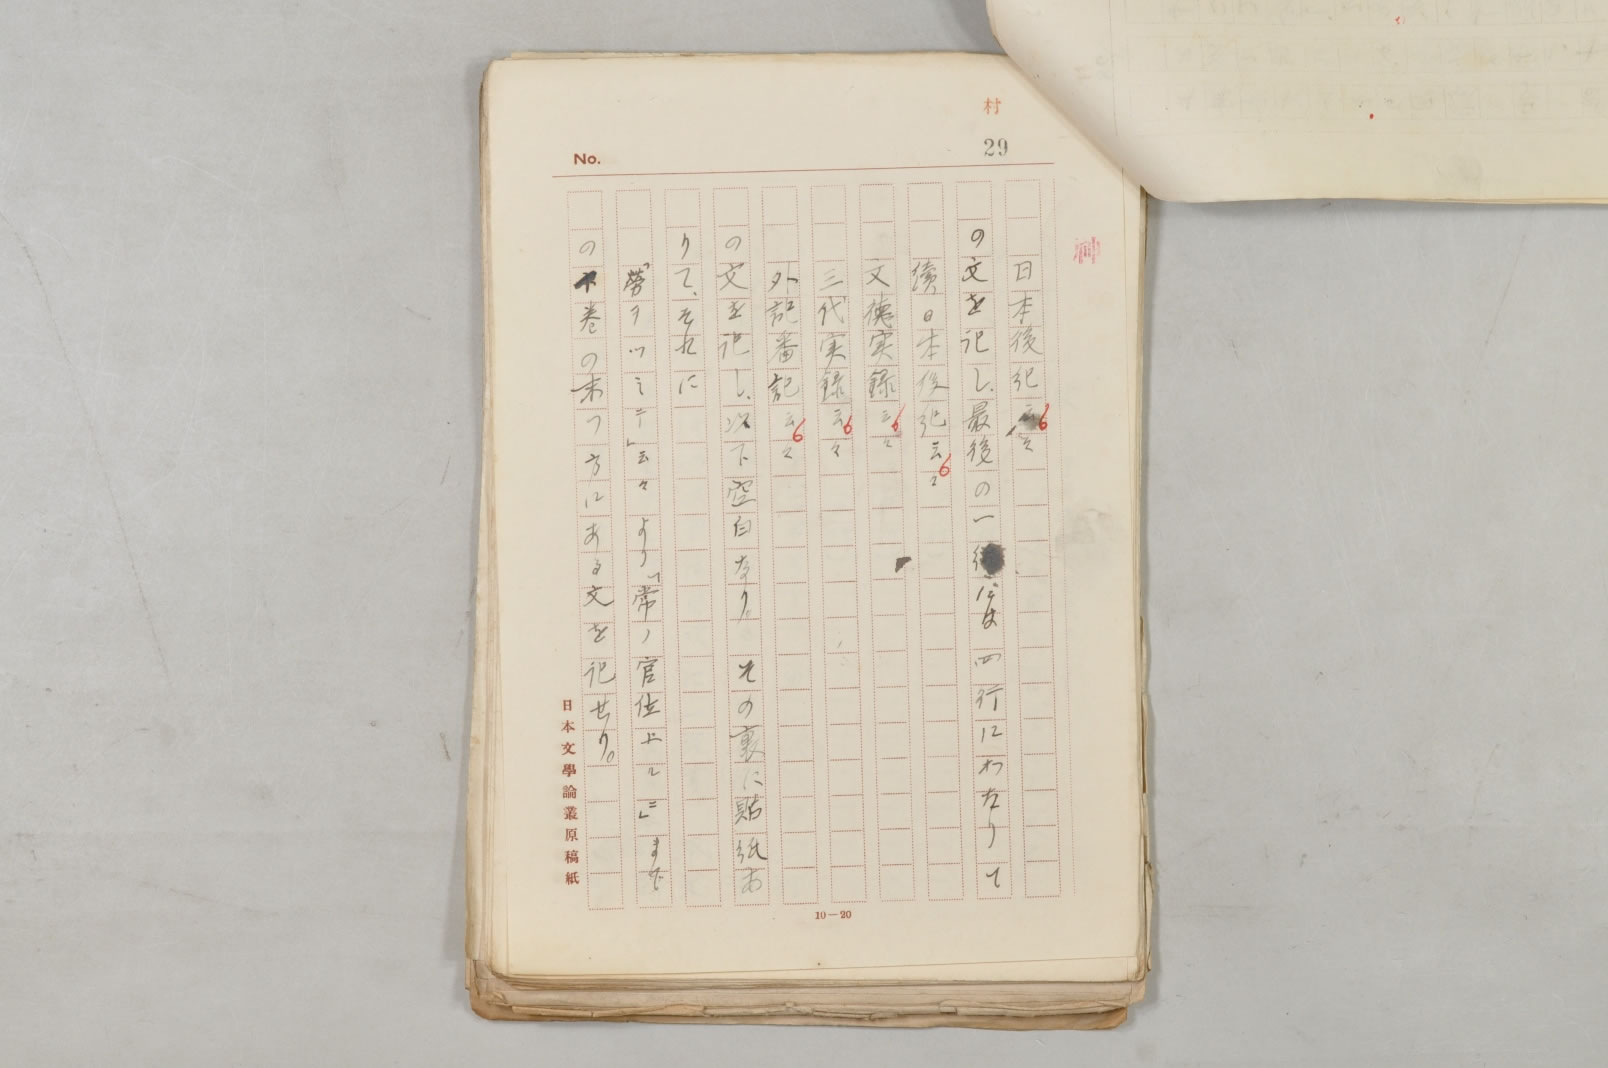 村
29
No.
日本後紀云々
の文を記し、最後の一行には四行にわたりて
續日本後紀云々
文德実録云々
三代実録云々
外記番記云々
の文を記し、以下空白なり。その裏に貼紙あ
りて、それに
「労ヲツミテ」云々より「常ノ官位上ルニ」まで
の下巻の末つ方にある文を記せり。
日本文學論叢原稿紙
10—20